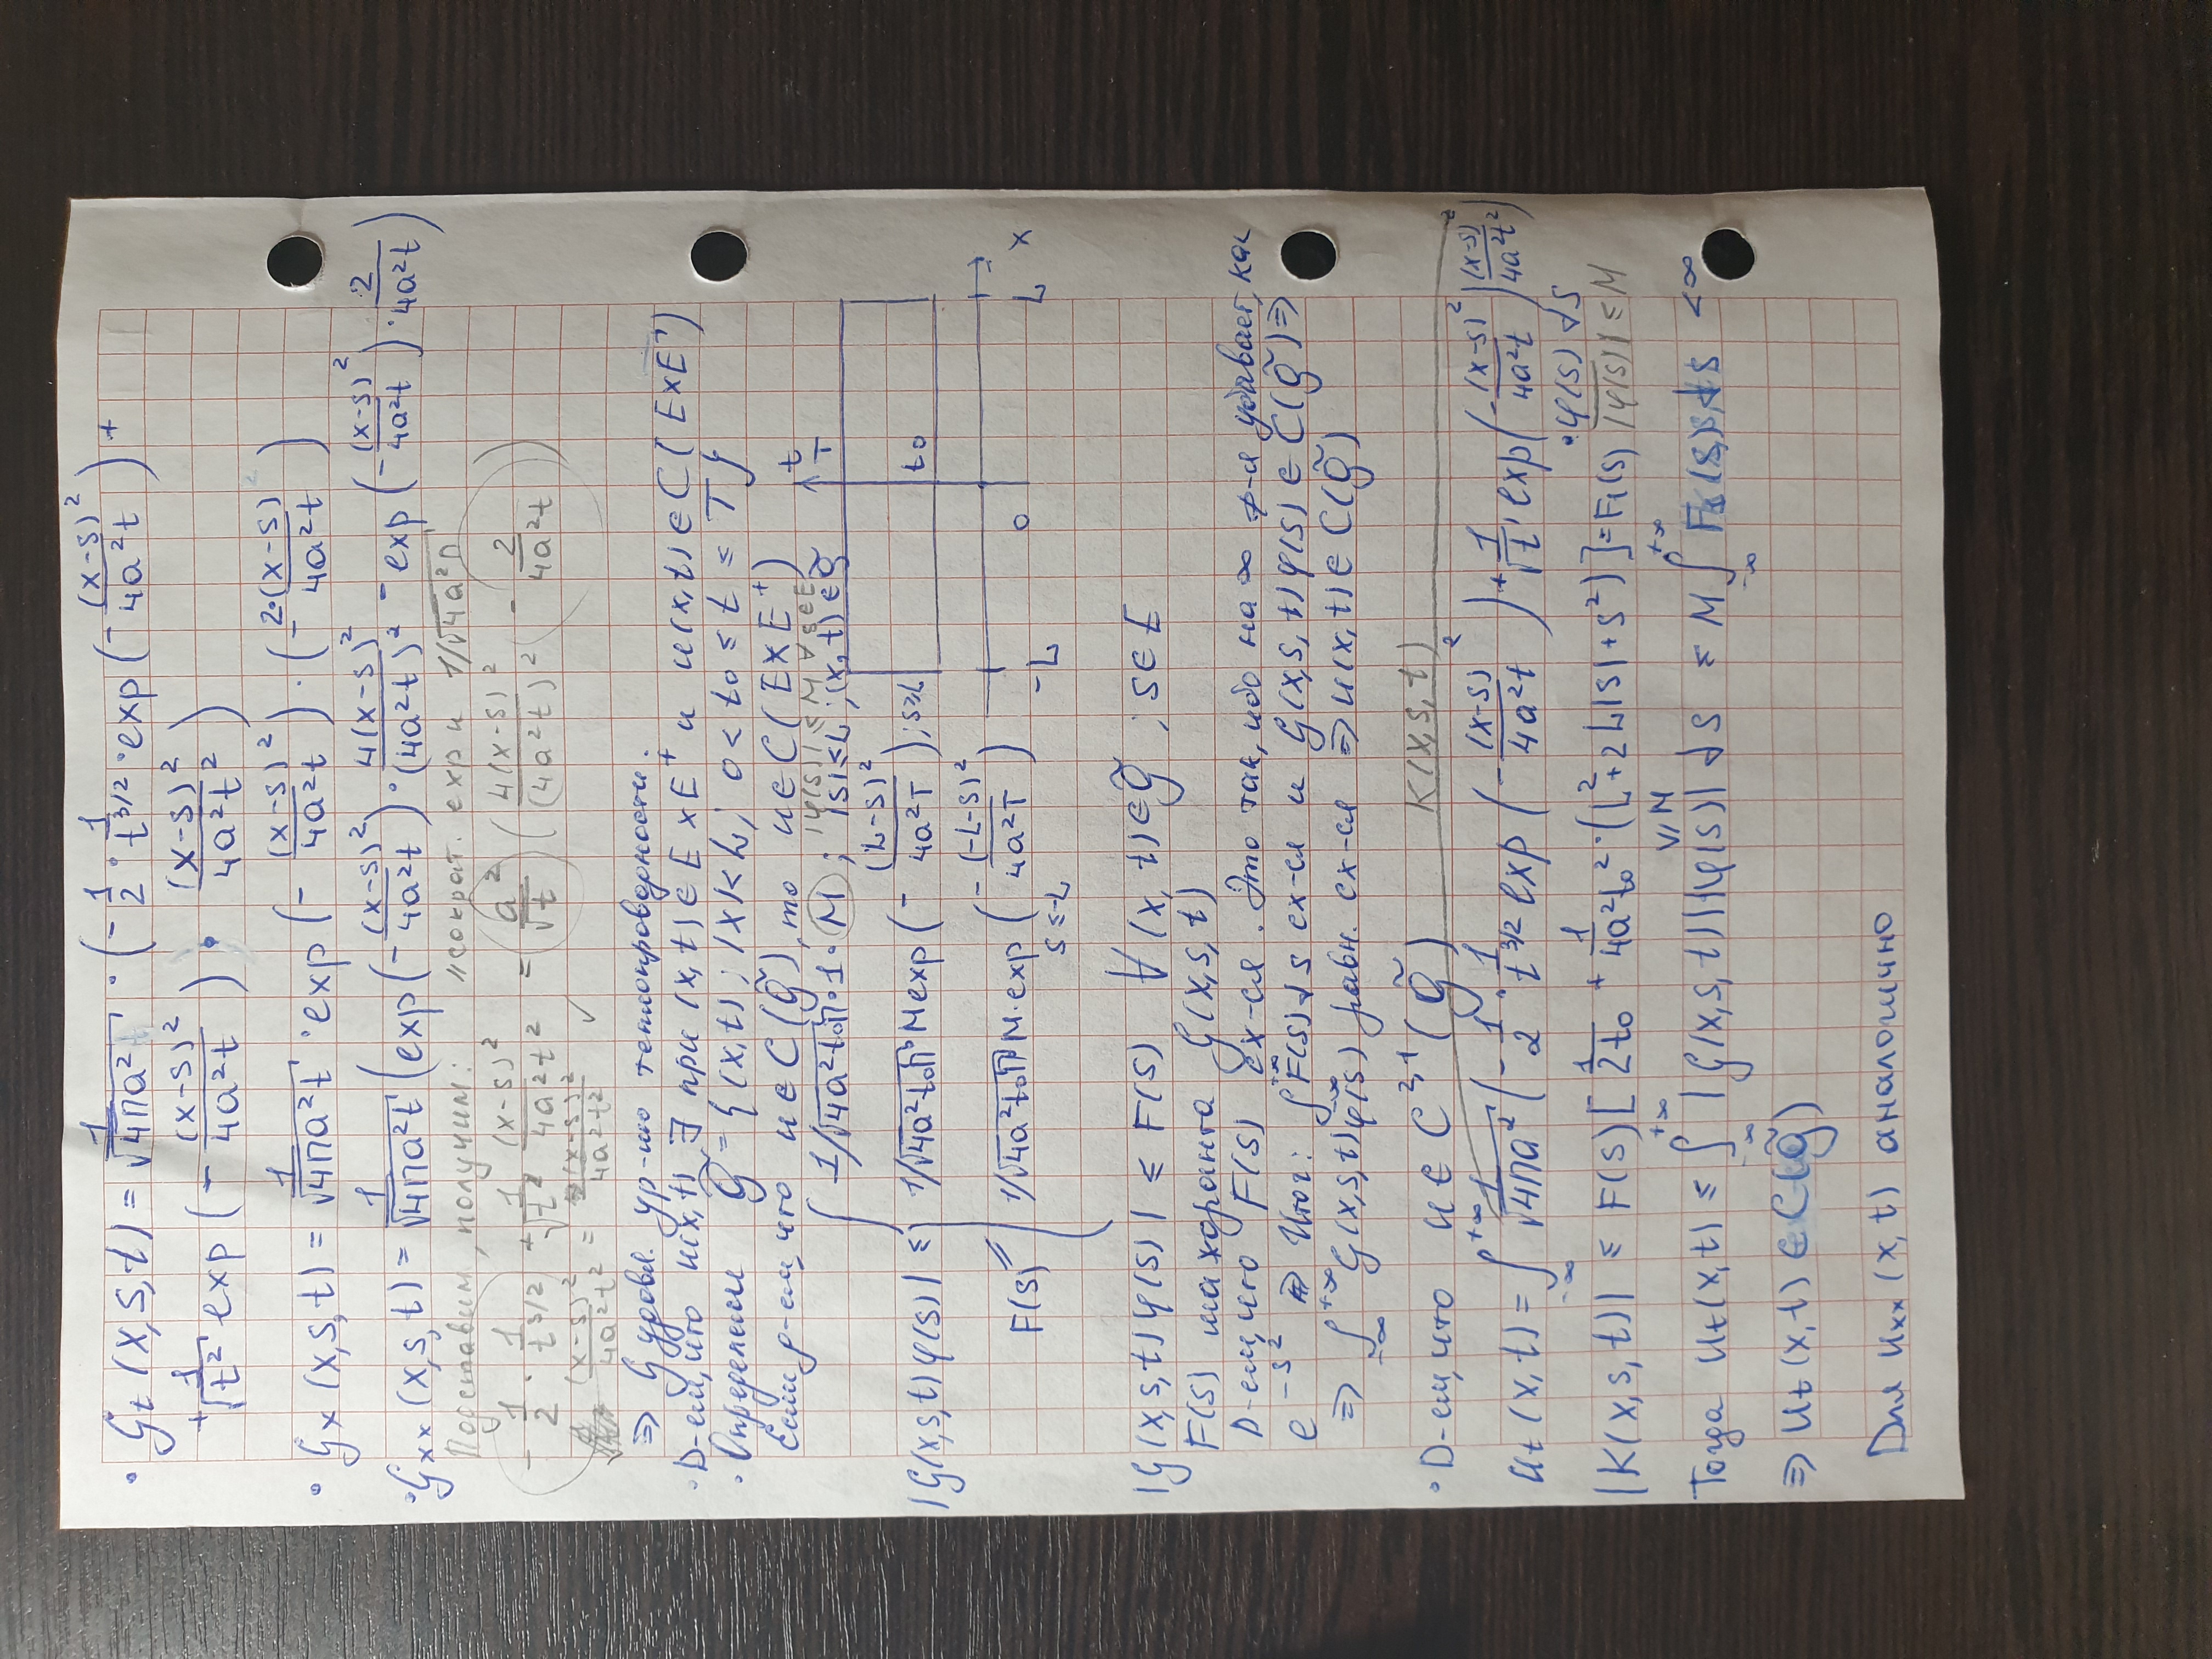 · G_t (x,s,t) = 1/√(4πa²) · (-1/2 · 1/t^{3/2} · exp(-(x-s)²/4a²t) +
+ 1/√t exp(-(x-s)²/4a²t) · (x-s)²/4a²t²)
· G_x (x,s,t) = 1/√(4πa²t) · exp(-(x-s)²/4a²t) · (-2·(x-s)/4a²t)
· G_xx (x,s,t) = 1/√(4πa²t) (exp(-(x-s)²/4a²t) · 4(x-s)²/(4a²t)² - exp(-(x-s)²/4a²t) · 2/4a²t)
Подставим, получим: "сократ. exp и 1/√(4a²π)
-1/2 · 1/t^{3/2} + 1/√t · (x-s)²/4a²t² = (a²/√t)(4(x-s)²/(4a²t)² - 2/4a²t)
(x-s)²/4a²t² = (x-s)²/4a²t² ✓
⇒ G удовл. ур-ию теплопроводности.
· D-ем, что u(x,t) ∃ при (x,t) ∈ E×E⁺ и u(x,t) ∈ C(E×E⁺)
· Определим G̃ = {(x,t); |x|<L; 0 < t₀ ≤ t ≤ T}
Если д-ем, что u ∈ C(G̃), то u ∈ C(E×E⁺)
|φ(s)| ≤ M ∀ s∈E
|G(x,s,t)φ(s)| ≤ { 1/√(4a²t₀π) · 1 · M; |s|≤L; (x,t)∈G̃
1/√(4a²t₀π) M exp(-(L-s)²/4a²T); s≥L
F(s) = 1/√(4a²t₀π) M·exp(-(-L-s)²/4a²T)
s≤-L
t
T
t₀
-L 0 L x
|G(x,s,t)φ(s)| ≤ F(s) ∀ (x,t)∈G̃; s∈E
F(s) мажоранта G(x,s,t)
D-ем, что F(s) сх-ся. Это так, ибо на ∞ ф-я убывает, как
e^{-s²} ⇒ Итог: ∫_{-∞}^{+∞} F(s)ds сх-ся и G(x,s,t)φ(s) ∈ C(G̃) ⇒
⇒ ∫_{-∞}^{+∞} G(x,s,t)φ(s) равн. сх-ся ⇒ u(x,t) ∈ C(G̃)
· D-ем, что u ∈ C^{2,1}(G̃) K(x,s,t)
u_t (x,t) = ∫_{-∞}^{+∞} 1/√(4πa²) (-1/2 · 1/t^{3/2} exp(-(x-s)²/4a²t) + 1/√t exp(-(x-s)²/4a²t) (x-s)²/4a²t²)
· φ(s) ds
|K(x,s,t)| ≤ F(s) [1/2t₀ + 1/4a²t₀² · (L² + 2L|s| + s²)] = F₁(s) |φ(s)| ≤ M
Тогда u_t(x,t) ≤ ∫_{-∞}^{+∞} |G(x,s,t)||φ(s)| ds ≤ M ∫_{-∞}^{+∞} F₁(s)ds < ∞
⇒ u_t (x,t) ∈ C(G̃)
Для u_xx (x,t) аналогично